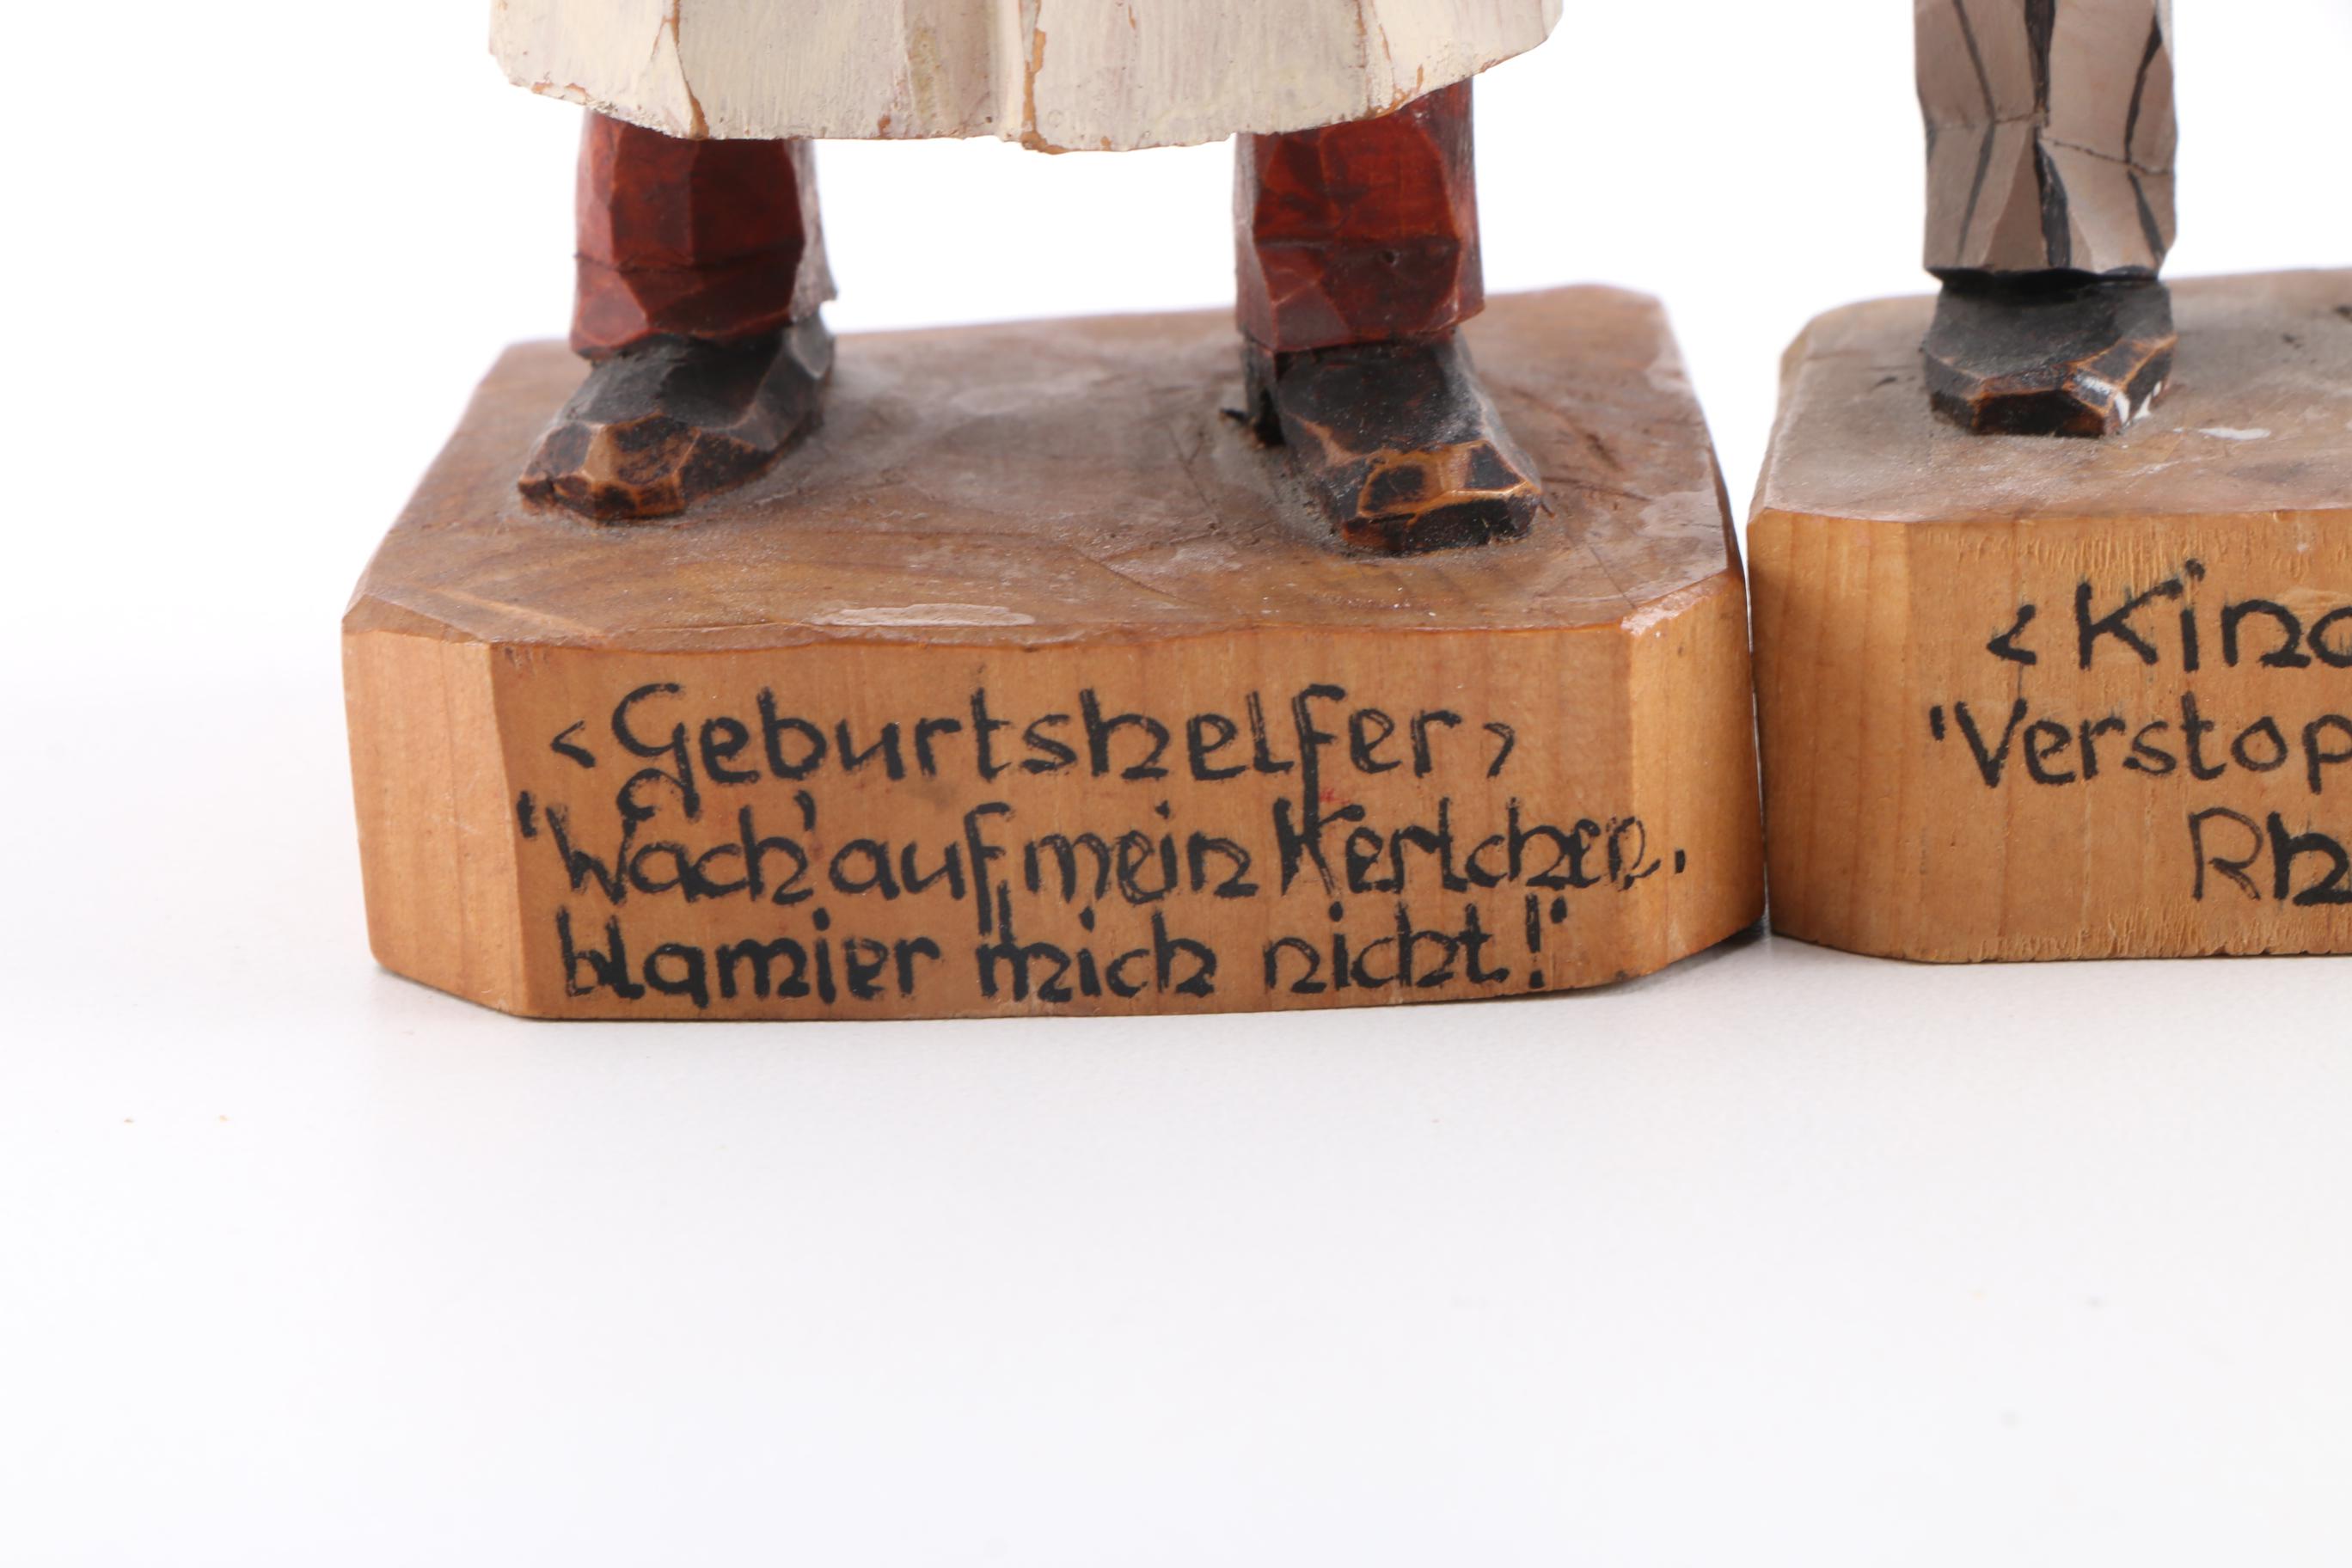 ‹Geburtshelfer›
'Wach' auf mein Kerlchen.
blamier mich nicht!'
‹Kind
'Verstop
Rh